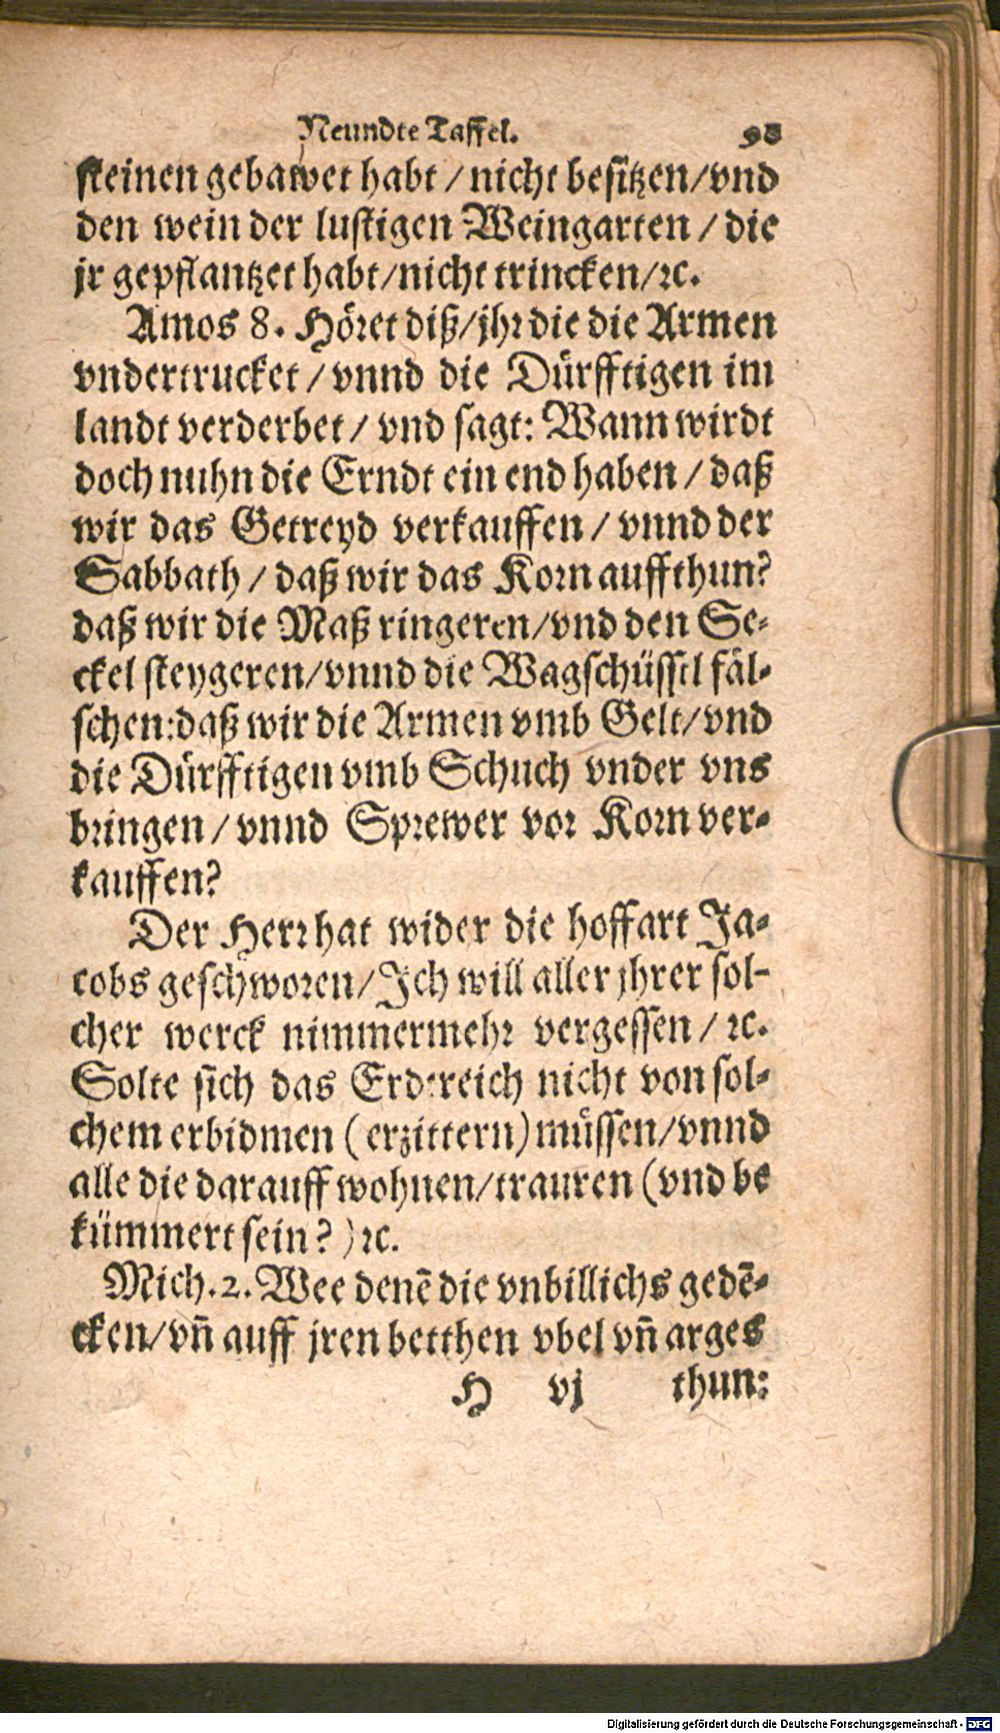 Neundte Taffel. 98
steinen gebawet habt / nicht besitzen/vnd
den wein der lustigen Weingarten / die
jr gepflantzet habt/nicht trincken/ꝛc.
Amos 8. Höꝛet diß/jhꝛ die die Armen
vndertrucket / vnnd die Dürfftigen im
landt verderbet / vnd sagt: Wann wirdt
doch nuhn die Erndt ein end haben / daß
wir das Getreyd verkauffen / vnnd der
Sabbath / daß wir das Koꝛn auffthun?
daß wir die Maß ringeren/vnd den Se-
ckel steygeren/vnnd die Wagschüssel fäl-
schen:daß wir die Armen vmb Gelt/vnd
die Dürfftigen vmb Schuch vnder vns
bꝛingen / vnnd Spꝛewer voꝛ Koꝛn ver-
kauffen?
Der Herꝛ hat wider die hoffart Ja-
cobs geschwoꝛen/Ich will aller jhrer sol-
cher werck nimmermehꝛ vergessen / ꝛc.
Solte sich das Erdtreich nicht von sol-
chem erbidmen (erzittern) müssen/vnnd
alle die darauff wohnen/trauren (vnd be
kümmert sein?) ꝛc.
Mich. 2. Wee denē die vnbillichs gedē-
cken/vñ auff jren betthen vbel vñ arges
H vj thun:
Digitalisierung gefördert durch die Deutsche Forschungsgemeinschaft - DFG